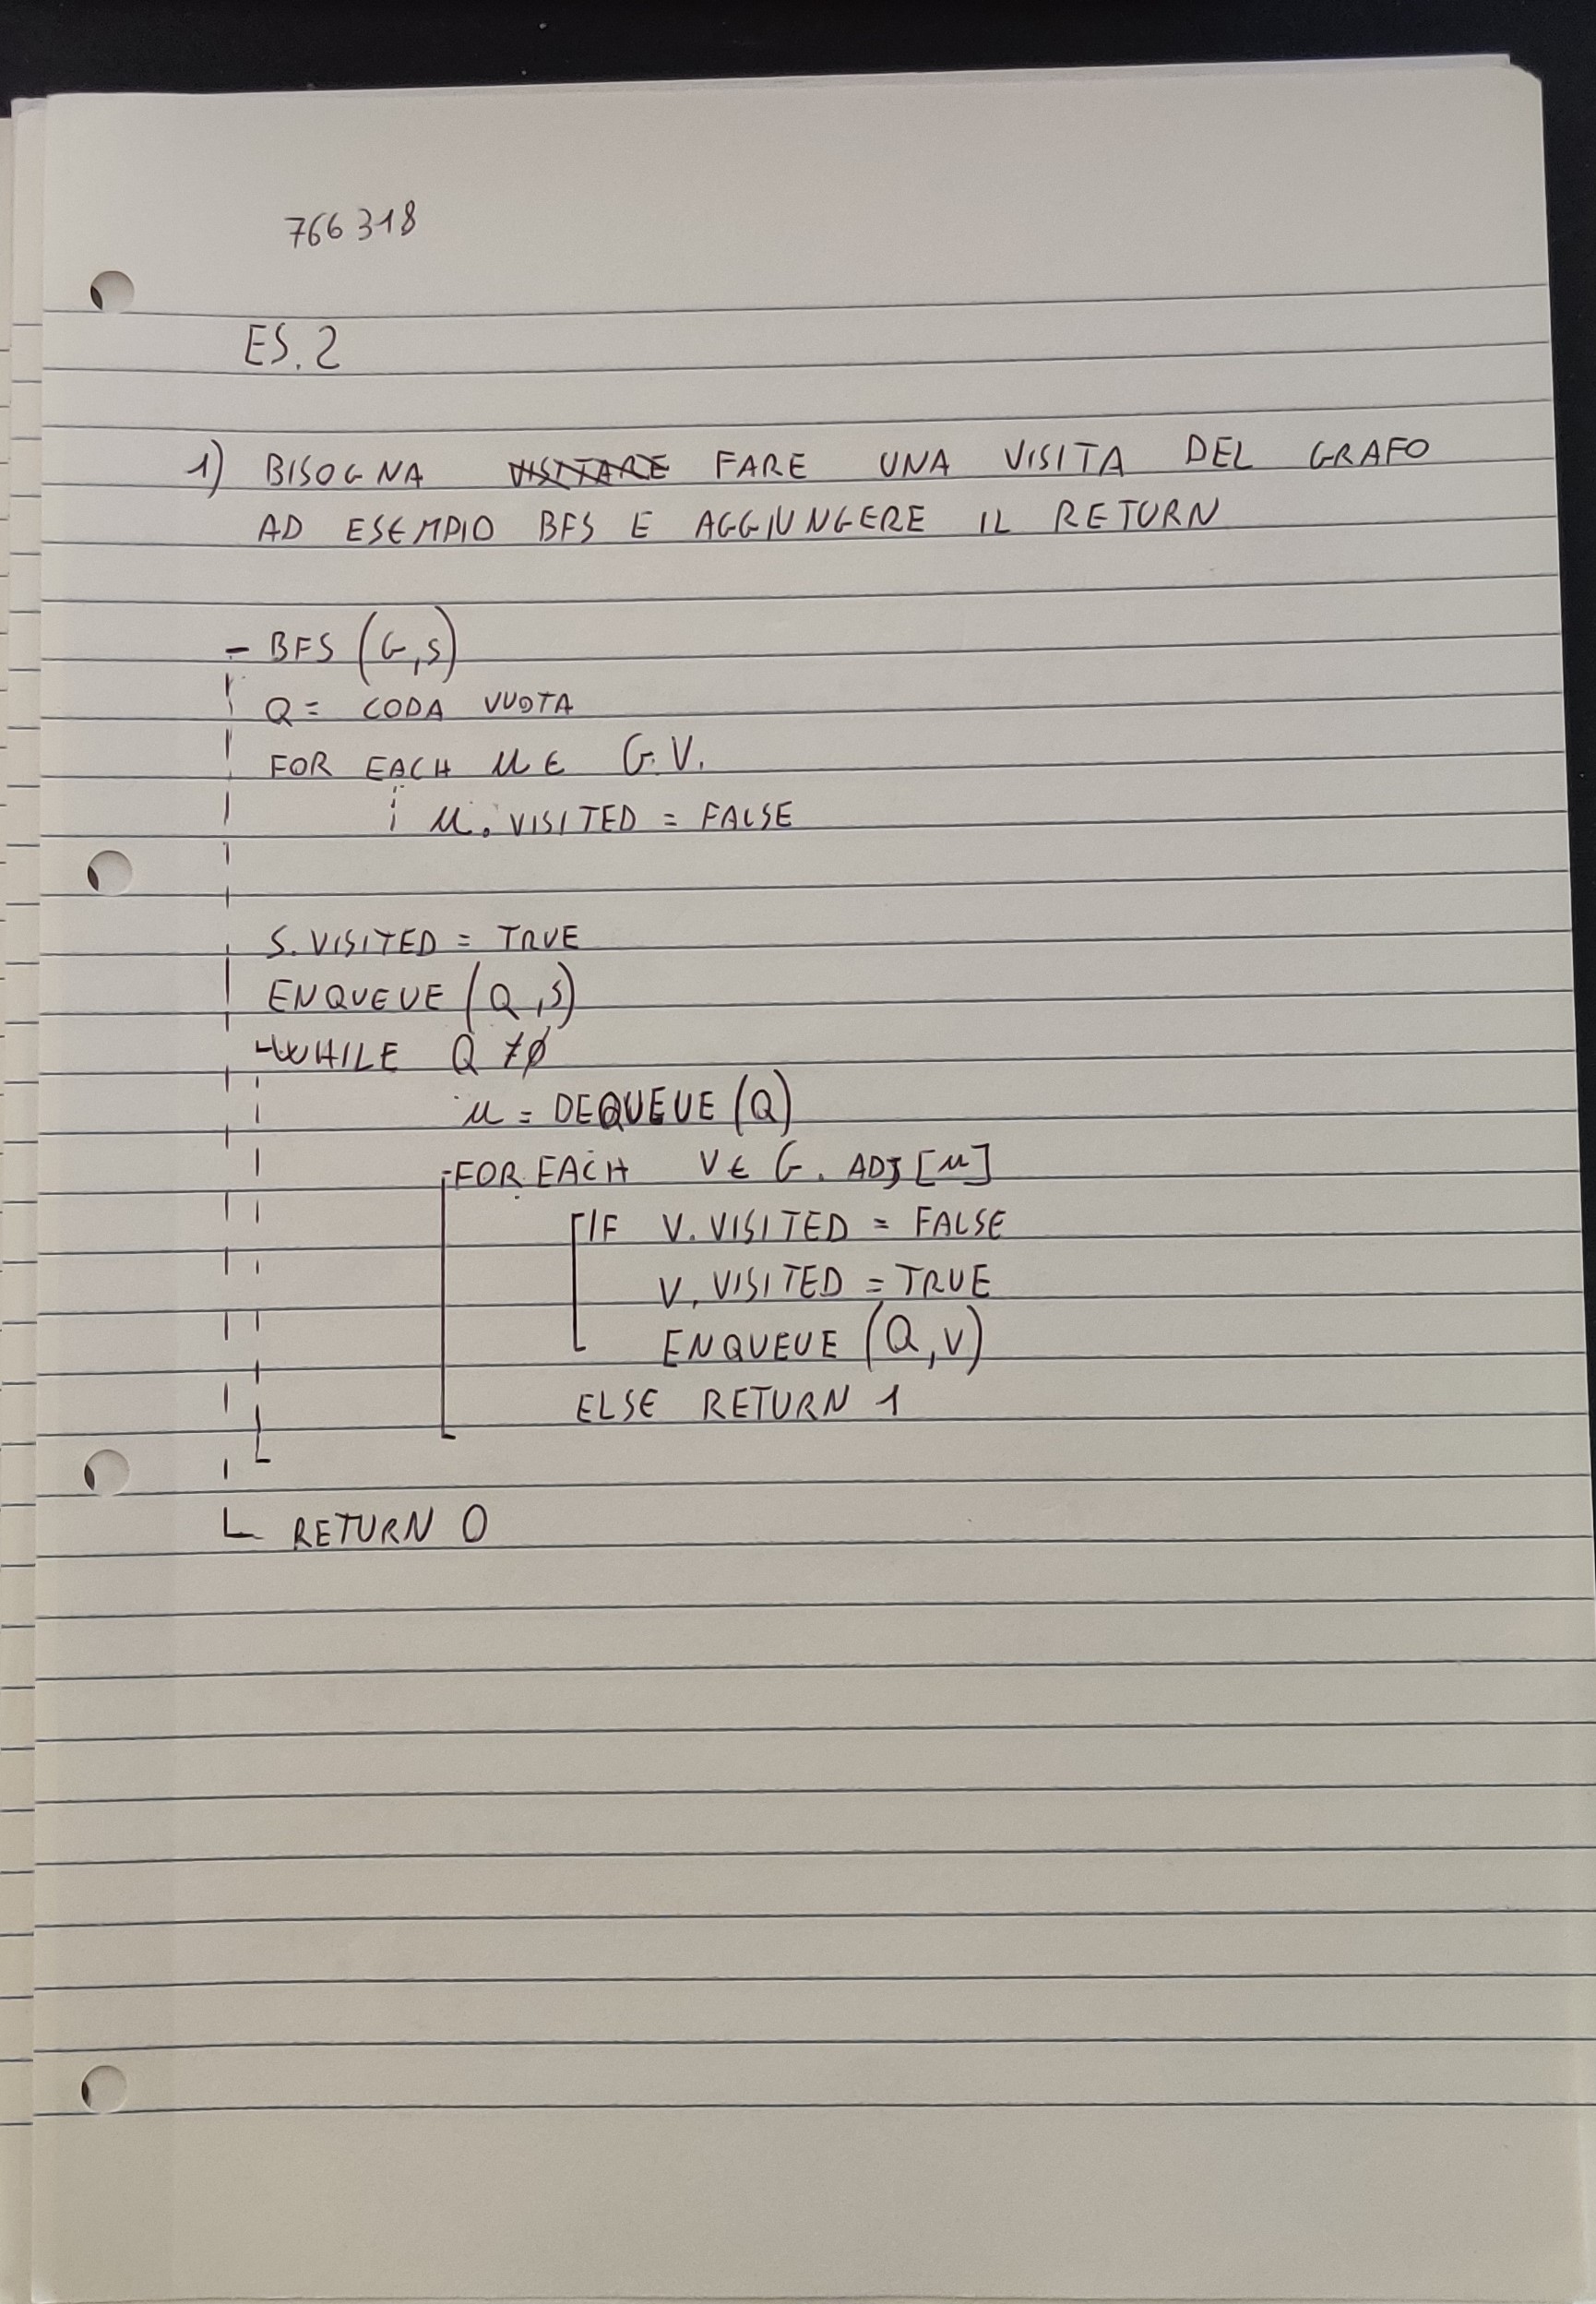 766318
ES. 2
1) BISOGNA VISITARE FARE UNA VISITA DEL GRAFO
AD ESEMPIO BFS E AGGIUNGERE IL RETURN
- BFS (G,S)
Q = CODA VUOTA
FOR EACH u ∈ G.V.
u. VISITED = FALSE
S. VISITED = TRUE
ENQUEUE (Q,S)
WHILE Q ≠ ∅
u = DEQUEUE (Q)
FOR EACH V ∈ G. ADJ [u]
IF V. VISITED = FALSE
V. VISITED = TRUE
ENQUEUE (Q,V)
ELSE RETURN 1
RETURN 0